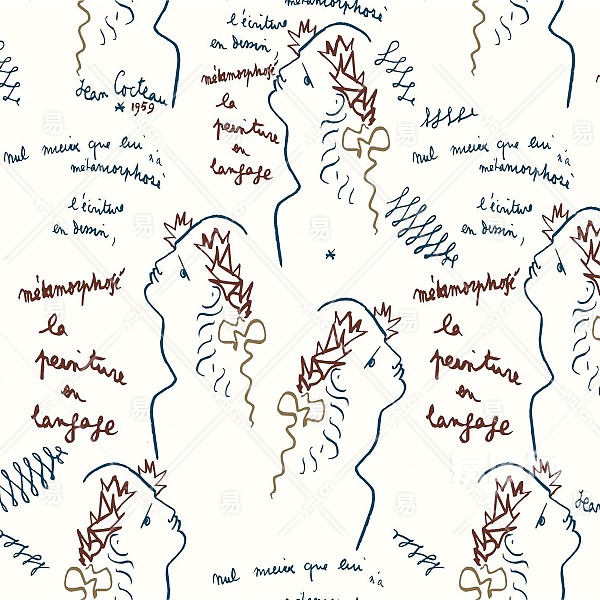 métamorphosé
l'écriture
en dessin,
métamorphosé
la
peinture
en
langage
Jean Cocteau
* 1959
nul mieux que lui n'a
métamorphosé
l'écriture
en dessin,
métamorphosé
la
peinture
en
langage
nul mieux que lui n'a
métamorphosé
l'écriture
en dessin,
métamorphosé
la
peinture
en
langage
Jean
nul mieux que lui n'a
métamorphosé